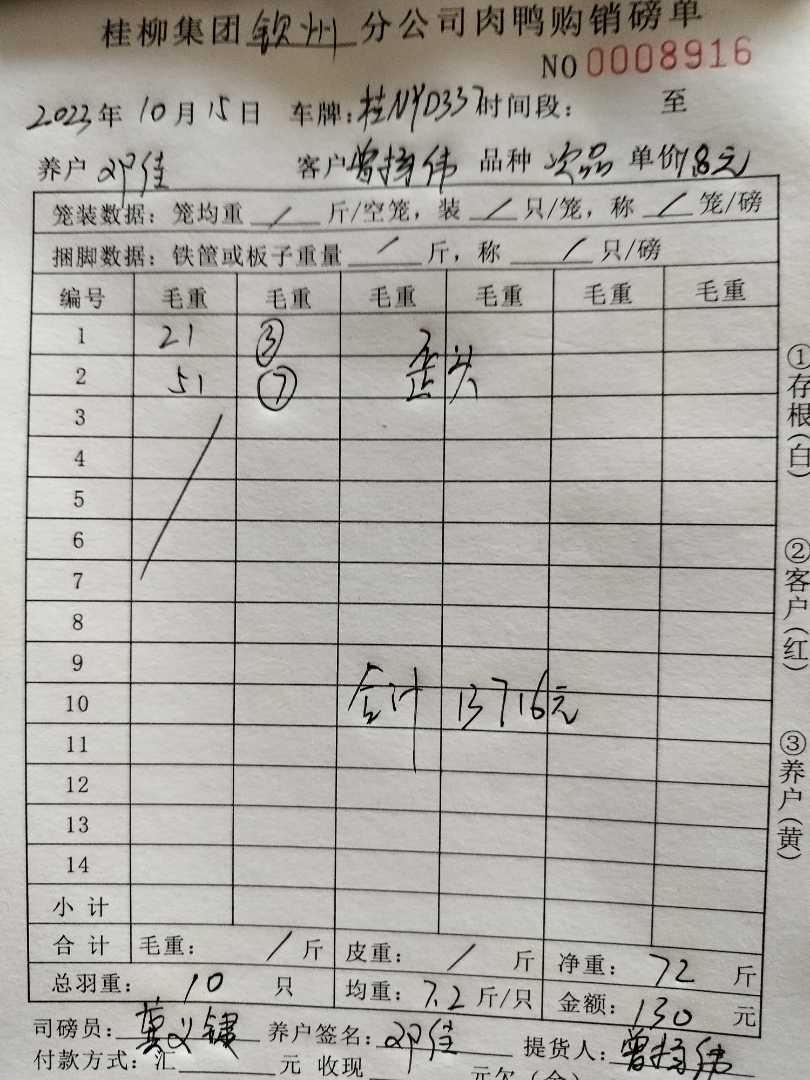 桂柳集团钦州分公司肉鸭购销磅单
NO 0008916
2023年10月15日 车牌:桂NYD337 时间段: 至
养户 邓佳 客户 曾扬伟 品种 次品 单价1.8元
笼装数据: 笼均重 / 斤/空笼, 装 / 只/笼, 称 / 笼/磅
捆脚数据: 铁筐或板子重量 / 斤, 称 / 只/磅
编号 毛重 毛重 毛重 毛重 毛重 毛重
1 21 ③ 歪头
2 51 ⑦
3
4
5
6
7
8
9
10 合计 13716元
11
12
13
14
小计
合计 毛重: / 斤 皮重: / 斤 净重: 72 斤
总羽重: 10 只 均重: 7.2 斤/只 金额: 130 元
司磅员: 莫义 养户签名: 邓佳 提货人: 曾扬伟
付款方式: 汇 元 收现 元欠(余)
①存根(白)
②客户(红)
③养户(黄)